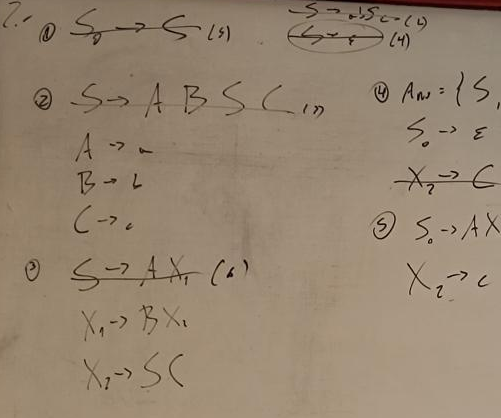 2.
① S₀ → S (5)
S → abSc (2)
S → ε (4)
② S → A B S C (3)
A → a
B → b
C → c
③ S → A X₁ (6)
X₁ → B X₂
X₂ → S C
④ Anu = { S,
S₀ → ε
X₂ → C
⑤ S₀ → A X
X₂ → c